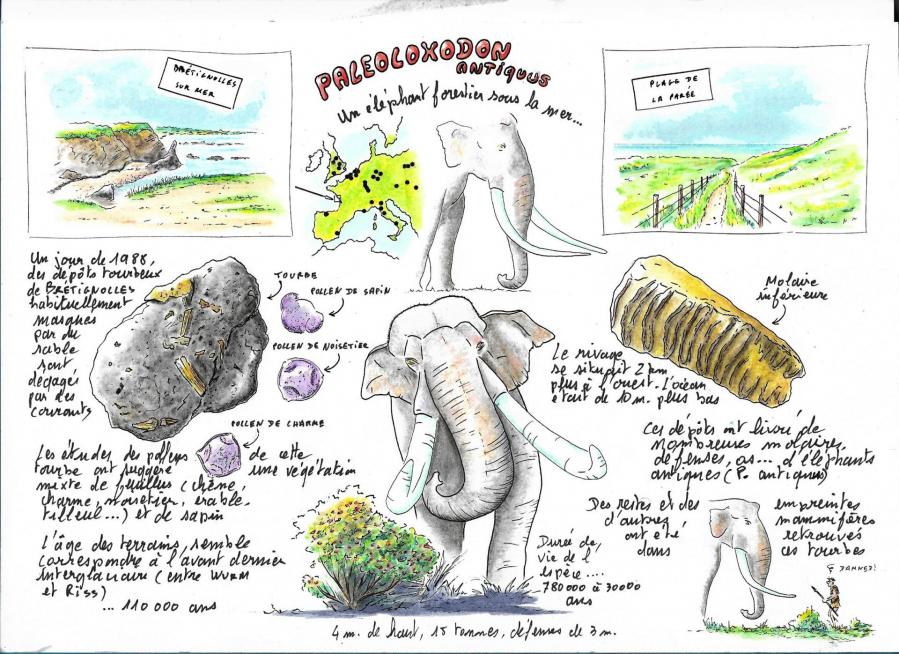 PALEOLOXODON
ANTIQUUS
Un éléphant forestier sous la mer...
BRÉTIGNOLLES
SUR MER
PLAGE DE
LA PARÉE
Un jour de 1988,
des dépôts tourbeux
de BRETIGNOLLES
habituellement
masqués
par du
sable
sont
dégagés
par les
courants
TOURBE
POLLEN DE SAPIN
POLLEN DE NOISETIER
POLLEN DE CHARME
Les études des pollens de cette
tourbe ont suggéré une végétation
mixte de feuillus (chêne,
charme, noisetier, érable,
tilleul...) et de sapin
L'âge des terrains semble
correspondre à l'avant dernier
interglaciaire (entre WURM
et RISS)
... 110 000 ans
Molaire
inférieure
Le rivage
se situait 2 km
plus à l'ouest. l'océan
était de 10 m. plus bas
Ces dépôts ont livré de
nombreuses molaires,
défenses, os... d'éléphants
antiques (P. antiquus)
Des restes et des empreintes
d'autres mammifères
ont été retrouvés
dans ces tourbes
DAMNED!
Durée de
vie de l'
espèce....
780000 à 30000
ans
4 m. de haut, 15 tonnes, défenses de 3 m.